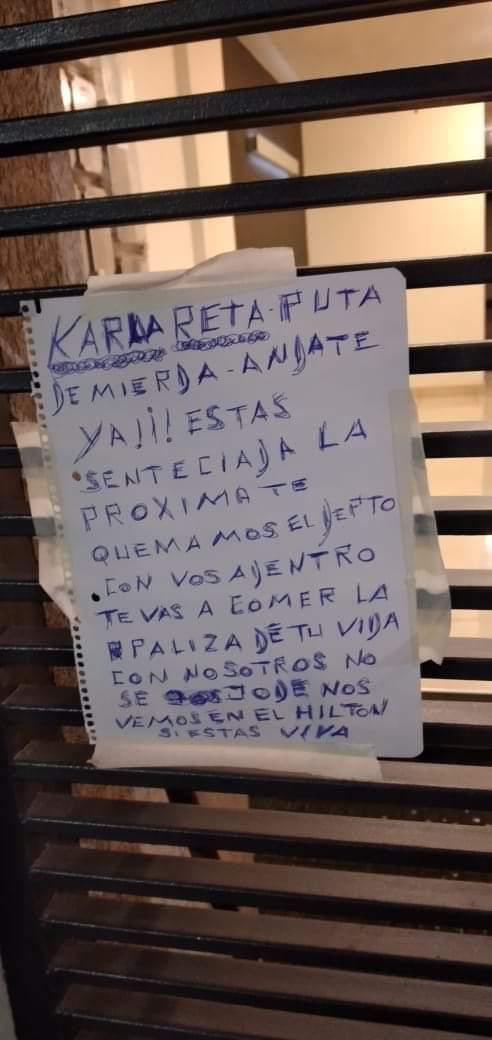 KARLA RETA-PUTA
DE MIERDA-ANDATE
YA!¡! ESTAS
SENTECIADA LA
PROXIMA TE
QUEMAMOS EL DEPTO
CON VOS ADENTRO
TE VAS A COMER LA
PALIZA DE TU VIDA
CON NOSOTROS NO
SE JODE NOS
VEMOS EN EL HILTON
SI ESTAS VIVA